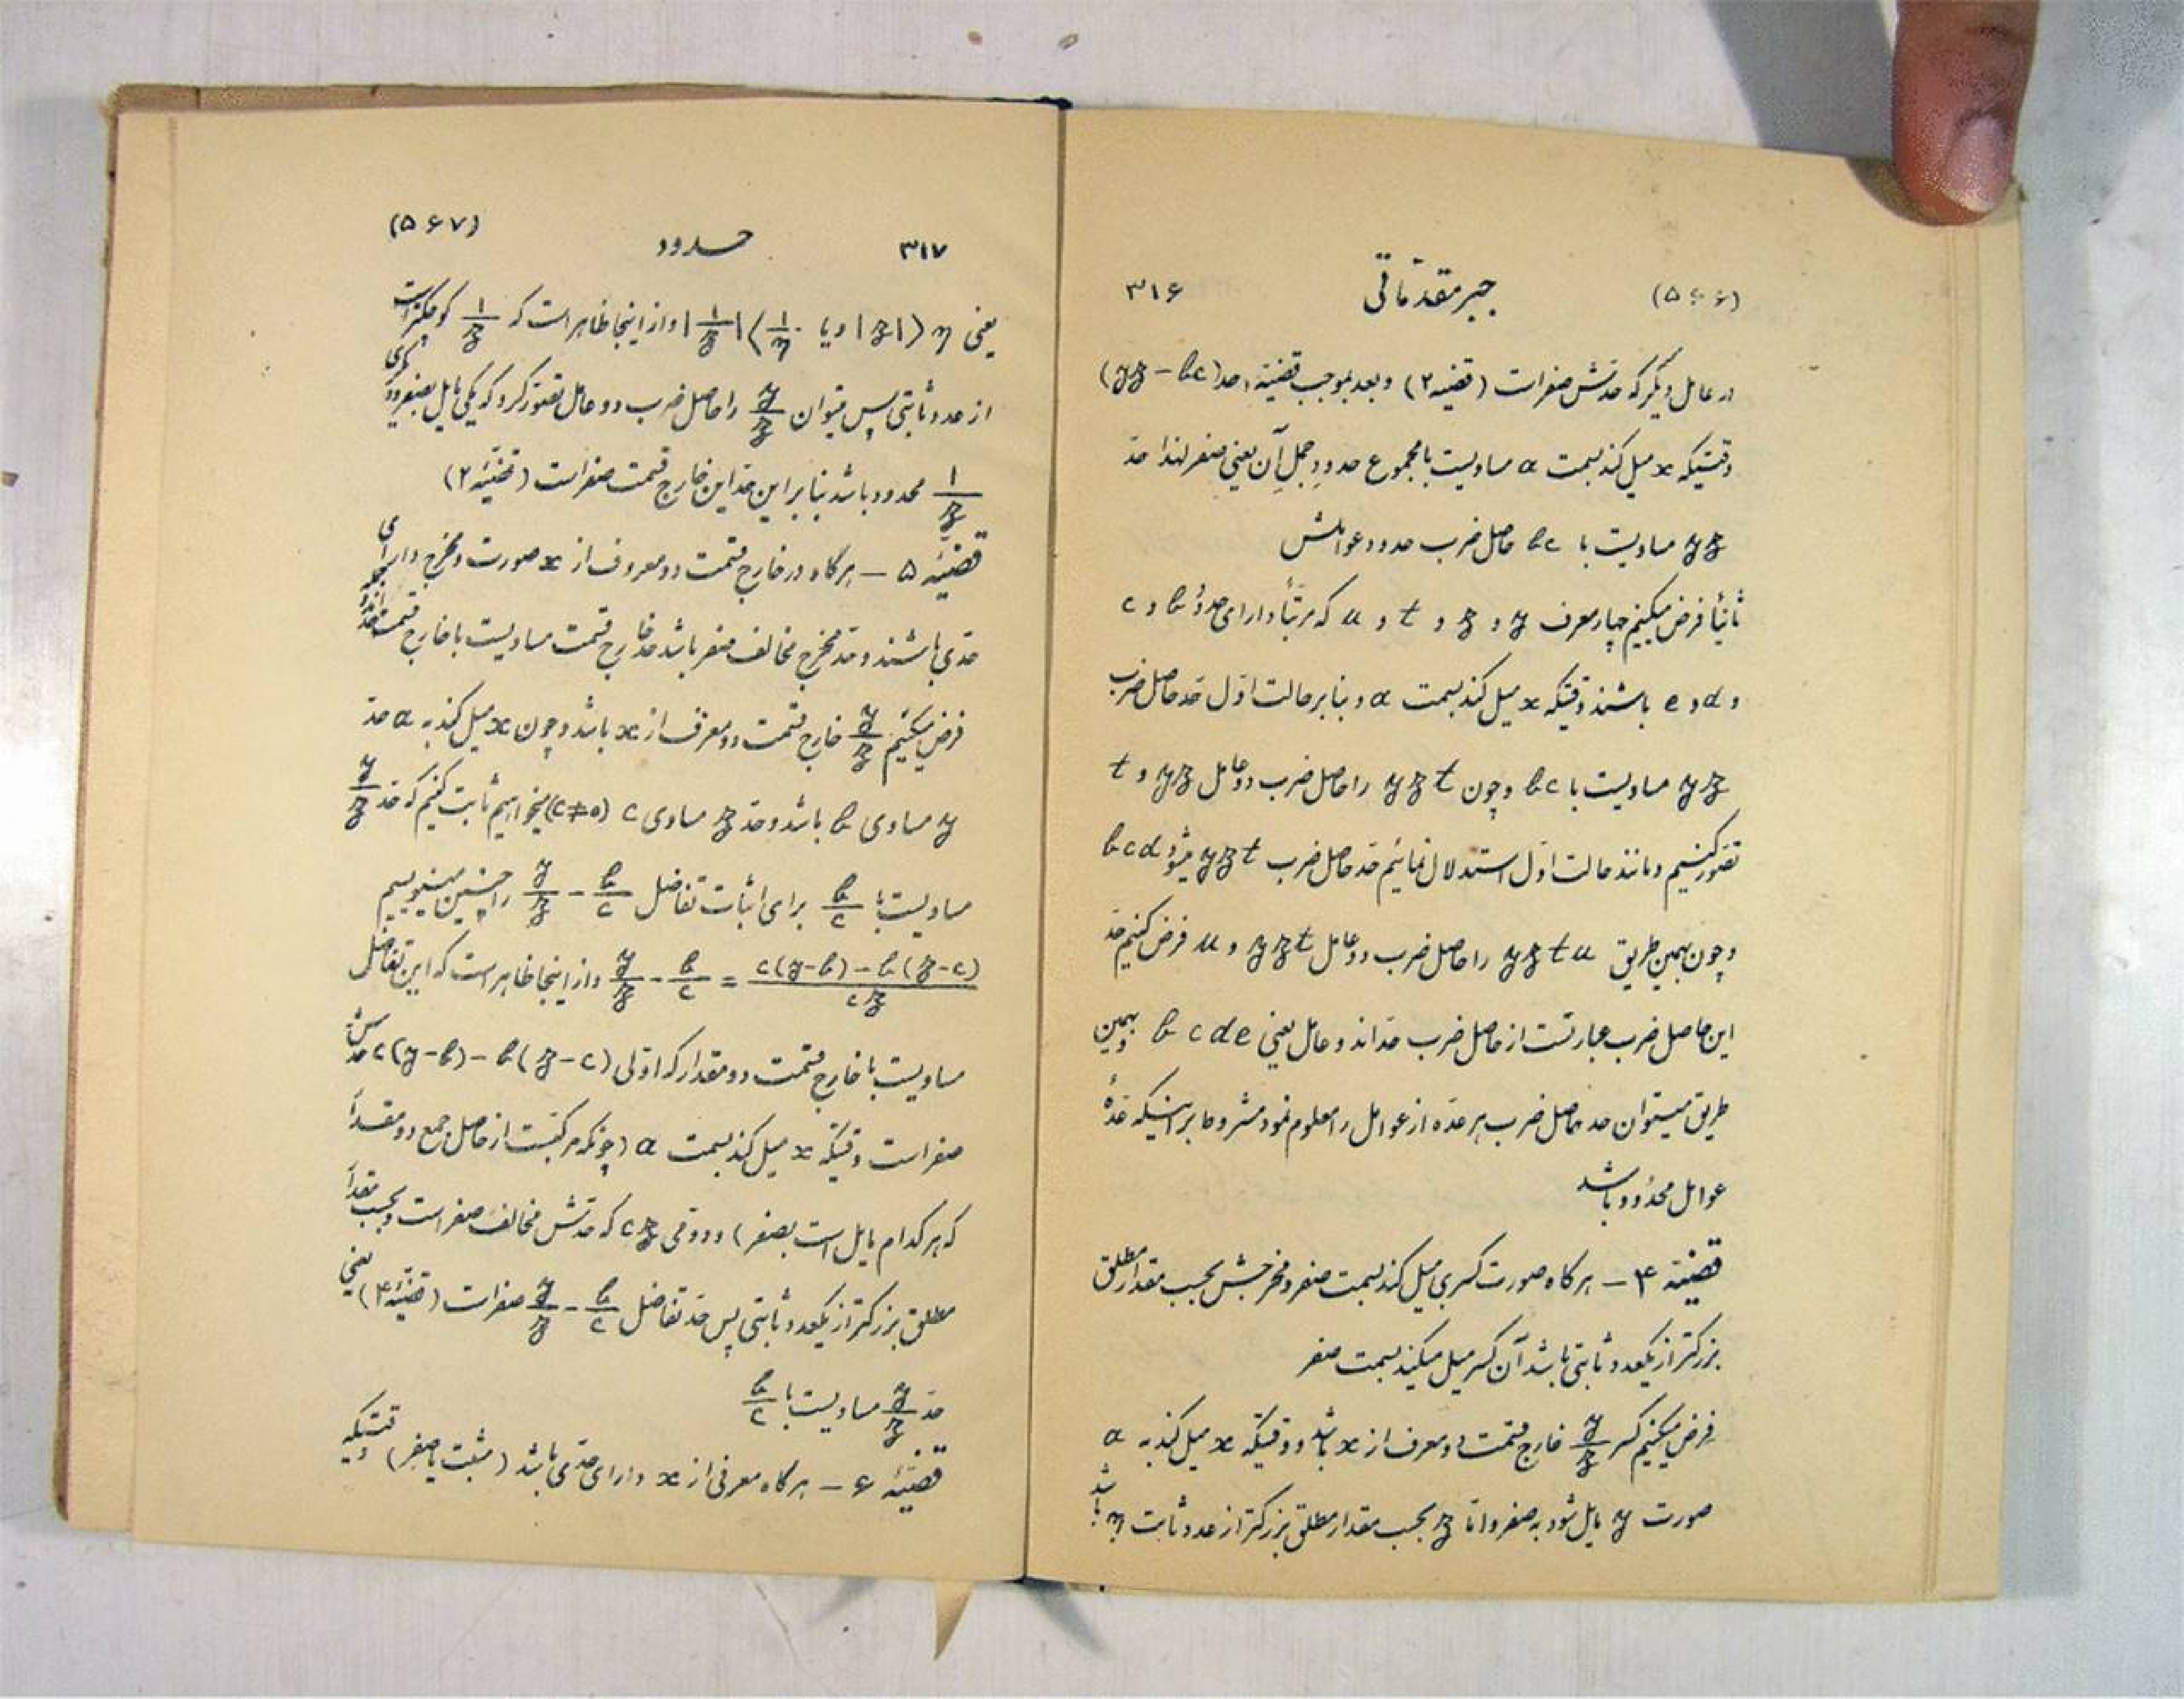 (۵۶۶) جبر مقدماتی ۳۱۶
در عامل دیگر که حدش صفر است (قضیه ۲) و بعد بموجب قضیه ۱ حد (yz − bc)
وقتیکه x میل کند بسمت a مساویست با مجموع حدود جمل آن یعنی صفر لهذا حد
yz مساویست با bc حاصل ضرب حدود عواملش
ثانیاً فرض میکنیم چهار معرف y و z و t و u که مرتباً دارای حدود b و c
و d و e باشند وقتیکه x میل کند بسمت a و بنا بر حالت اول حد حاصل ضرب
yz مساویست با bc و چون yzt را حاصل ضرب دو عامل yz و t
تصور کنیم و مانند حالت اول استدلال نمائیم حد حاصل ضرب yzt میشود bcd
و چون بهمین طریق yztu را حاصل ضرب دو عامل yzt و u فرض کنیم حد
این حاصل ضرب عبارتست از حاصل ضرب حد اند و عامل یعنی bcde و بهمین
طریق میتوان حد حاصل ضرب هر عده از عوامل را معلوم نمود مشروط بر اینکه عدهٔ
عوامل محدود باشد
قضیهٔ ۴ – هر گاه صورت کسری میل کند بسمت صفر و مخرجش بحسب مقدار مطلق
بزرگتر از یکعدد ثابتی باشد آن کسر میل میکند بسمت صفر
فرض میکنیم کسر y/z خارج قسمت دو معرف از x باشد و وقتیکه x میل کند به a
صورت y مایل شود به صفر و اما z بحسب مقدار مطلق بزرگتر از عدد ثابت η باشد
۳۱۷ حدود (۵۶۷)
یعنی |z| > η و یا |1/z| < 1/η و از اینجا ظاهر است که 1/z کوچکتر است
از عدد ثابتی پس میتوان y/z را حاصل ضرب دو عامل تصور کرد که یکی مایل بصفر و دیگری
1/z محدود باشد بنا بر این حد این خارج قسمت صفر است (قضیهٔ ۲)
قضیهٔ ۵ – هر گاه در خارج قسمت دو معروف از x صورت و مخرج دارای
حدی باشند و حد مخرج مخالف صفر باشد حد خارج قسمت مساویست با خارج قسمت حد
فرض میکنیم y/z خارج قسمت دو معرف از x باشد و چون x میل کند به a حد
y مساوی b باشد و حد z مساوی c (c≠0) میخواهیم ثابت کنیم که حد y/z
مساویست با b/c برای اثبات تفاضل y/z − b/c را چنین مینویسیم
y/z − b/c = c(y−b)−b(z−c)/cz و از اینجا ظاهر است که این تفاضل
مساویست با خارج قسمت دو مقدار که اولی c(y−b)−b(z−c) حدش
صفر است وقتیکه x میل کند بسمت a (چونکه مرکبست از حاصل جمع دو مقدار
که هر کدام مایل است بصفر) و دومی cz که حدش مخالف صفر است و بحسب مقدار
مطلق بزرگتر از یکعدد ثابتی پس حد تفاضل y/z − b/c صفر است (قضیهٔ ۴) یعنی
حد y/z مساویست با b/c
قضیهٔ ۶ – هر گاه معرفی از x دارای حدی باشد (مثبت یا صفر) وقتیکه